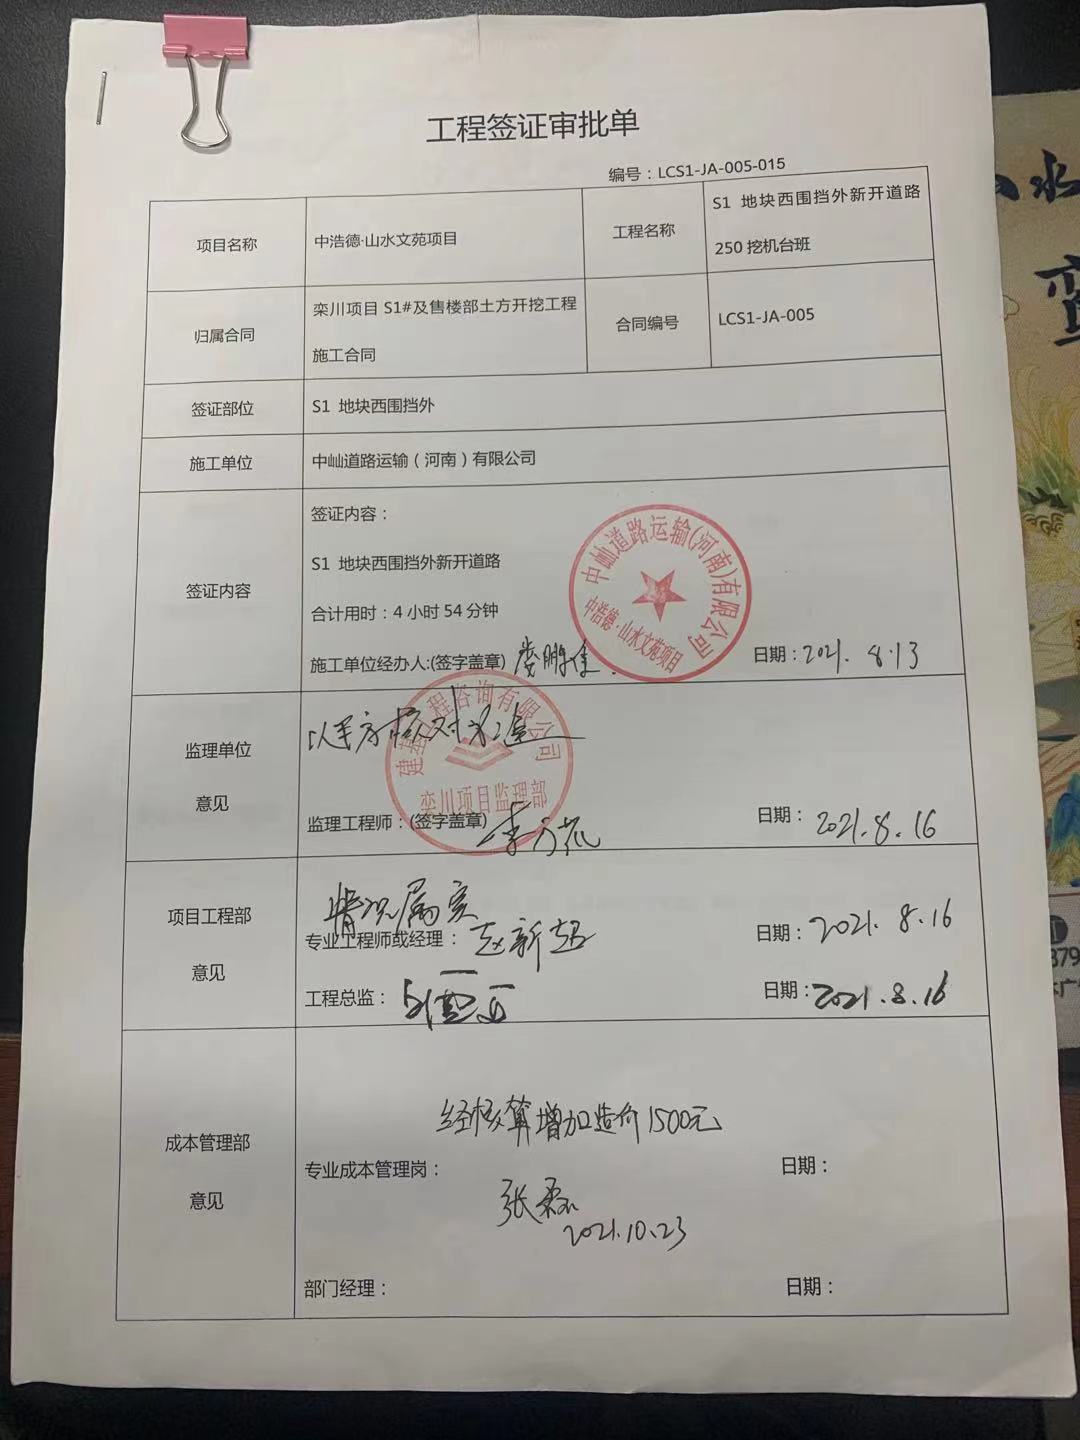 工程签证审批单
编号：LCS1-JA-005-015
项目名称
中浩德·山水文苑项目
工程名称
S1 地块西围挡外新开道路
250 挖机台班
归属合同
栾川项目 S1#及售楼部土方开挖工程
施工合同
合同编号
LCS1-JA-005
签证部位
S1 地块西围挡外
施工单位
中屾道路运输（河南）有限公司
签证内容
签证内容：
S1 地块西围挡外新开道路
合计用时：4 小时 54 分钟
施工单位经办人:(签字盖章)
日期：2021. 8.13
中屾道路运输(河南)有限公司
中浩德·山水文苑项目
监理单位
意见
以甲方核对为准
监理工程师：(签字盖章)
日期： 2021.8.16
工程咨询有限公司
栾川项目监理部
项目工程部
意见
情况属实
专业工程师或经理： 赵新超
日期： 2021. 8.16
工程总监：
日期： 2021.8.16
成本管理部
意见
经核算增加造价1500元
专业成本管理岗：
日期：
张磊
2021.10.23
部门经理：
日期：
山水
379